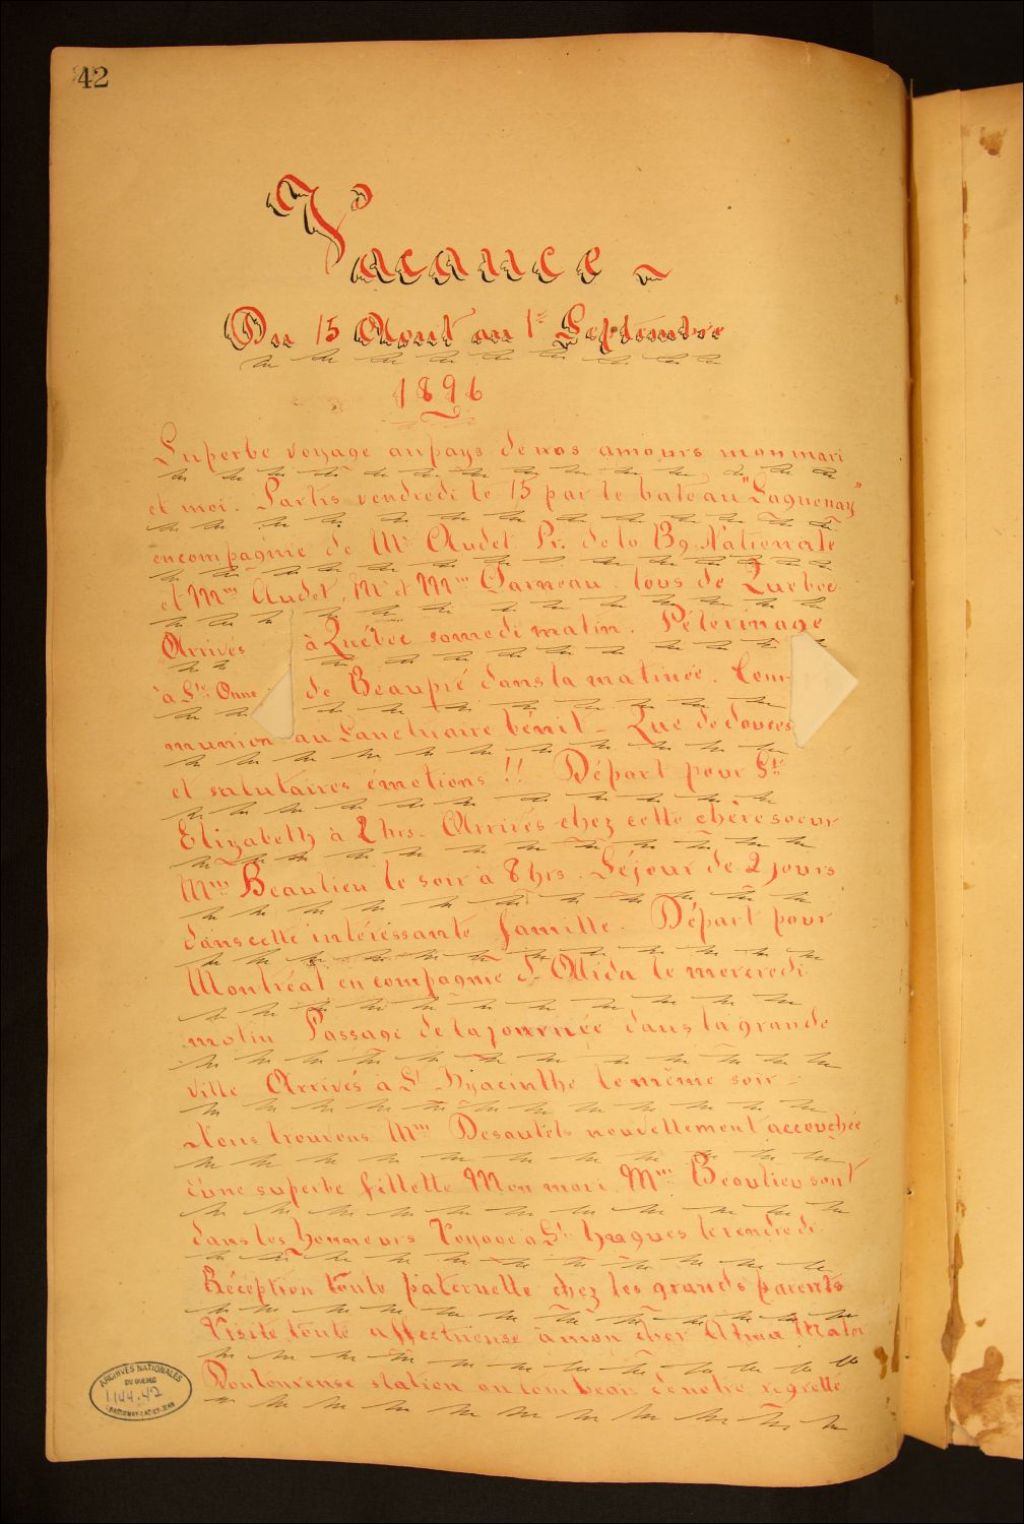 42
Vacance -
Du 15 Aout au 1er Septembre
1896
Superbe voyage au pays de nos amours mon mari
et moi. Partis vendredi le 15 par le bateau "Saguenay"
en compagnie de Mr Audet Pr. de la Bq. Nationale
et Mme Audet, Mr et Mme Garneau. tous de Québec.
Arrivés à Québec samedi matin. Pélerinage
à Ste Anne de Beaupré dans la matinée. Com-
munion au Sanctuaire bénit - Que de douces
et salutaires émotions !! Départ pour Ste
Elizabeth à 2 hrs. Arrivés chez cette chère soeur
Mme Beaulieu le soir à 8 hrs. Séjour de 2 jours
dans cette intéressante famille. Départ pour
Montréal en compagnie d'Alida le mercredi
matin Passage de la journée dans la grande
ville Arrivés à St Hyacinthe le même soir -
Nous trouvons Mme Desautels nouvellement accouchée
d'une superbe fillette Mon mari Mme Beaulieu sont
dans les honneurs Voyage a St Hugues le vendredi
Réception toute paternelle chez les grands parents
Visite toute affectueuse à mon cher Alma Mater
Douloureuse station au tombeau de notre regretté
ARCHIVES NATIONALES
DU QUÉBEC
1144.42